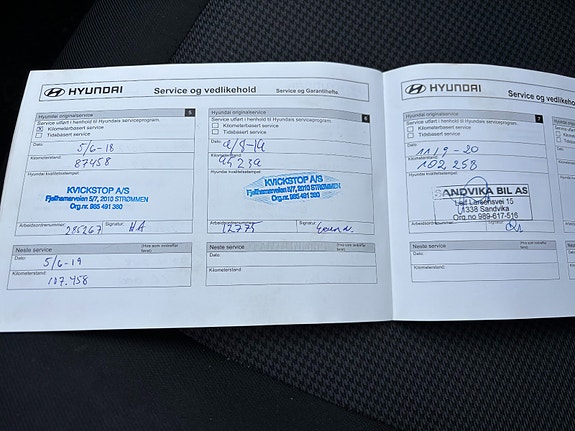 HYUNDAI Service og vedlikehold Service og Garantihefte.
Hyundai originalservice 5
Service utført i henhold til Hyundais serviceprogram.
Kilometerbasert service
Tidsbasert service
Dato:
5/6-18
Kilometerstand:
87458
Hyundai kvalitetsstempel:
KVICKSTOP A/S
Fjellhamarveien 5/7, 2010 STRØMMEN
Org.nr. 985 491 380
Arbeidsordrenummer: Signatur:
285267 HA
Neste service
Dato:
5/6-19
Kilometerstand:
107.458
Hyundai originalservice 6
Service utført i henhold til Hyundais serviceprogram.
Kilometerbasert service
Tidsbasert service
Dato:
Kilometerstand:
Hyundai kvalitetsstempel:
KVICKSTOP A/S
Fjellhamarveien 5/7, 2010 STRØMMEN
Org.nr. 985 491 380
Arbeidsordrenummer: Signatur:
12775
Neste service
Dato:
Kilometerstand:
HYUNDAI Service og vedlikehold
Hyundai originalservice 7
Service utført i henhold til Hyundais serviceprogram.
Kilometerbasert service
Tidsbasert service
Dato:
11/9-20
Kilometerstand:
102 258
Hyundai kvalitetsstempel:
SANDVIKA BIL AS
Leif Larsensvei 15
1338 Sandvika
Org.no 989-617-516
Arbeidsordrenummer: Signatur:
Neste service
Dato:
Kilometerstand: